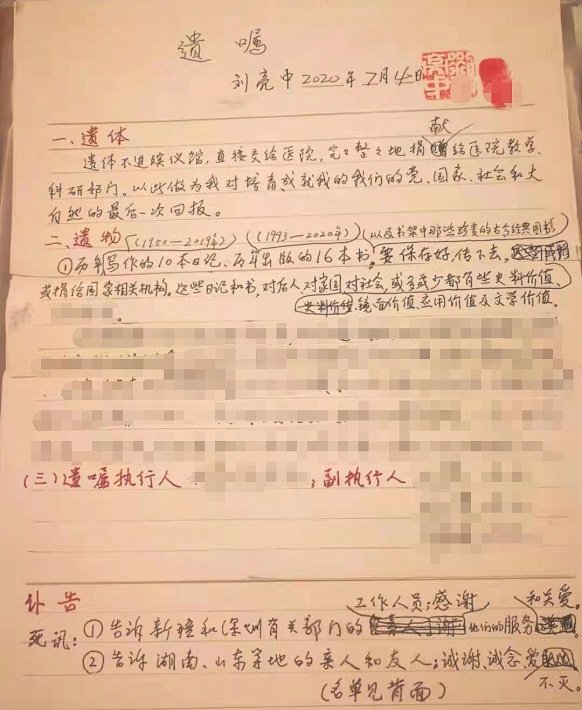 遗嘱
刘亮中 2020年2月4日
一、遗体
献
遗体不进殡仪馆,直接交给医院,完々整々地捐给医院教学、
科研部门。以此做为我对培育成就我的我们的党、国家、社会和大
自然的最后一次回报。
二、遗物 (1950—2019年) (1993—2020年) (以及书架中那些珍贵的古今经典图书)
①历年写作的10本日记、历年出版的16本书,要保存好,传下去,
或捐给国家相关机构。这些日记和书,对后人对家国对社会,或多或少都有些史料价值、
史料价值、镜鉴价值、应用价值及文学价值。
(三)遗嘱执行人 ;副执行人
讣告
工作人员;感谢 和关爱。
死讯:①告诉新疆和深圳有关部门的 他们的服务
②告诉湖南、山东等地的亲人和友人;诚谢、诚念、爱
不灭。
(名单见背面)